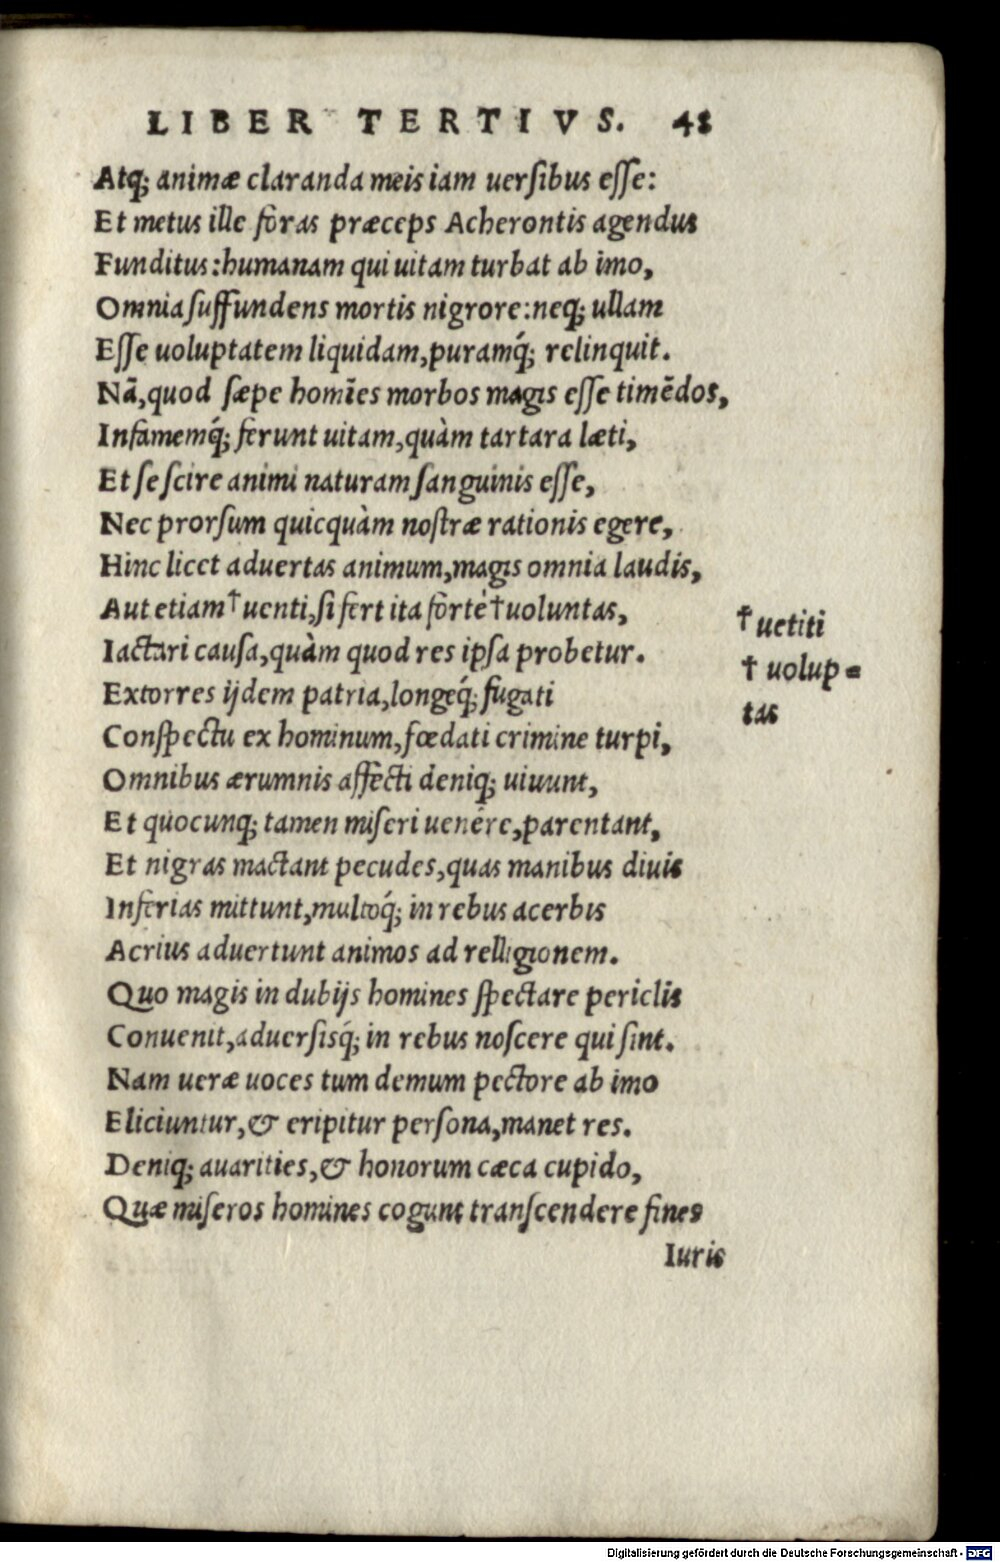 LIBER TERTIVS. 48
Atq; animæ claranda meis iam uersibus esse:
Et metus ille foras præceps Acherontis agendus
Funditus: humanam qui uitam turbat ab imo,
Omnia suffundens mortis nigrore: neq; ullam
Esse uoluptatem liquidam, puramq́; relinquit.
Nã, quod sæpe homĩes morbos magis esse timẽdos,
Infamemq́; ferunt uitam, quàm tartara læti,
Et se scire animi naturam sanguinis esse,
Nec prorsum quicquàm nostræ rationis egere,
Hinc licet aduertas animum, magis omnia laudis,
Aut etiam †uenti, si fert ita fortè †uoluntas,
†uetiti
Iactari causa, quàm quod res ipsa probetur.
† uolup=
Extorres ijdem patria, longeq́; fugati
tas
Conspectu ex hominum, fœdati crimine turpi,
Omnibus ærumnis affecti deniq; uiuunt,
Et quocunq; tamen miseri uenére, parentant,
Et nigras mactant pecudes, quas manibus diuis
Inferias mittunt, multoq́; in rebus acerbis
Acrius aduertunt animos ad relligionem.
Quo magis in dubijs homines spectare periclis
Conuenit, aduersisq́; in rebus noscere qui sint.
Nam ueræ uoces tum demum pectore ab imo
Eliciuntur, & eripitur persona, manet res.
Deniq; auarities, & honorum cæca cupido,
Quæ miseros homines cogunt transcendere fines
Iuris
Digitalisierung gefördert durch die Deutsche Forschungsgemeinschaft - DFG